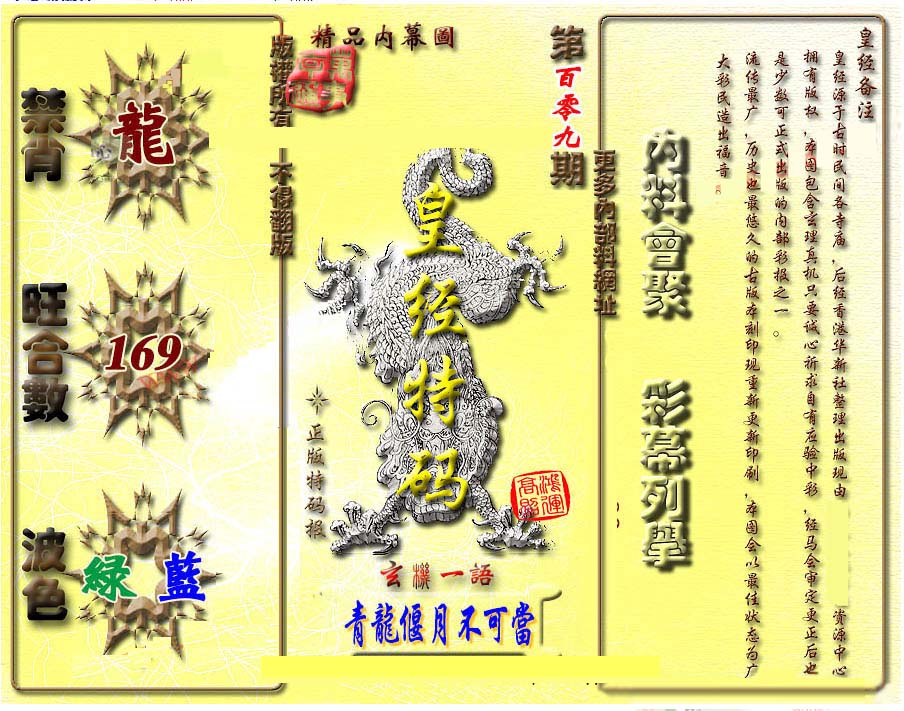 皇经备注
皇经源于古时民间各寺庙，后经香港华新社整理出版现由　资源中心
拥有版权，本图包含玄理真机只要诚心祈求自有应验中彩，经马会审定更正后也
是少数可正式出版的内部彩报之一。
流传最广，历史也最悠久的古版本刻印现重新更新印刷，本图会以最佳状态为广
大彩民造出福音
内料會聚
彩幕列學
更多內部料網址
第百零九期
精品内幕圖
皇经特码
鸿運高照
正版特码报
玄機一語
青龍偃月不可當
版權所有
不得翻版
禁肖
龍
旺合數
169
波色
綠 藍